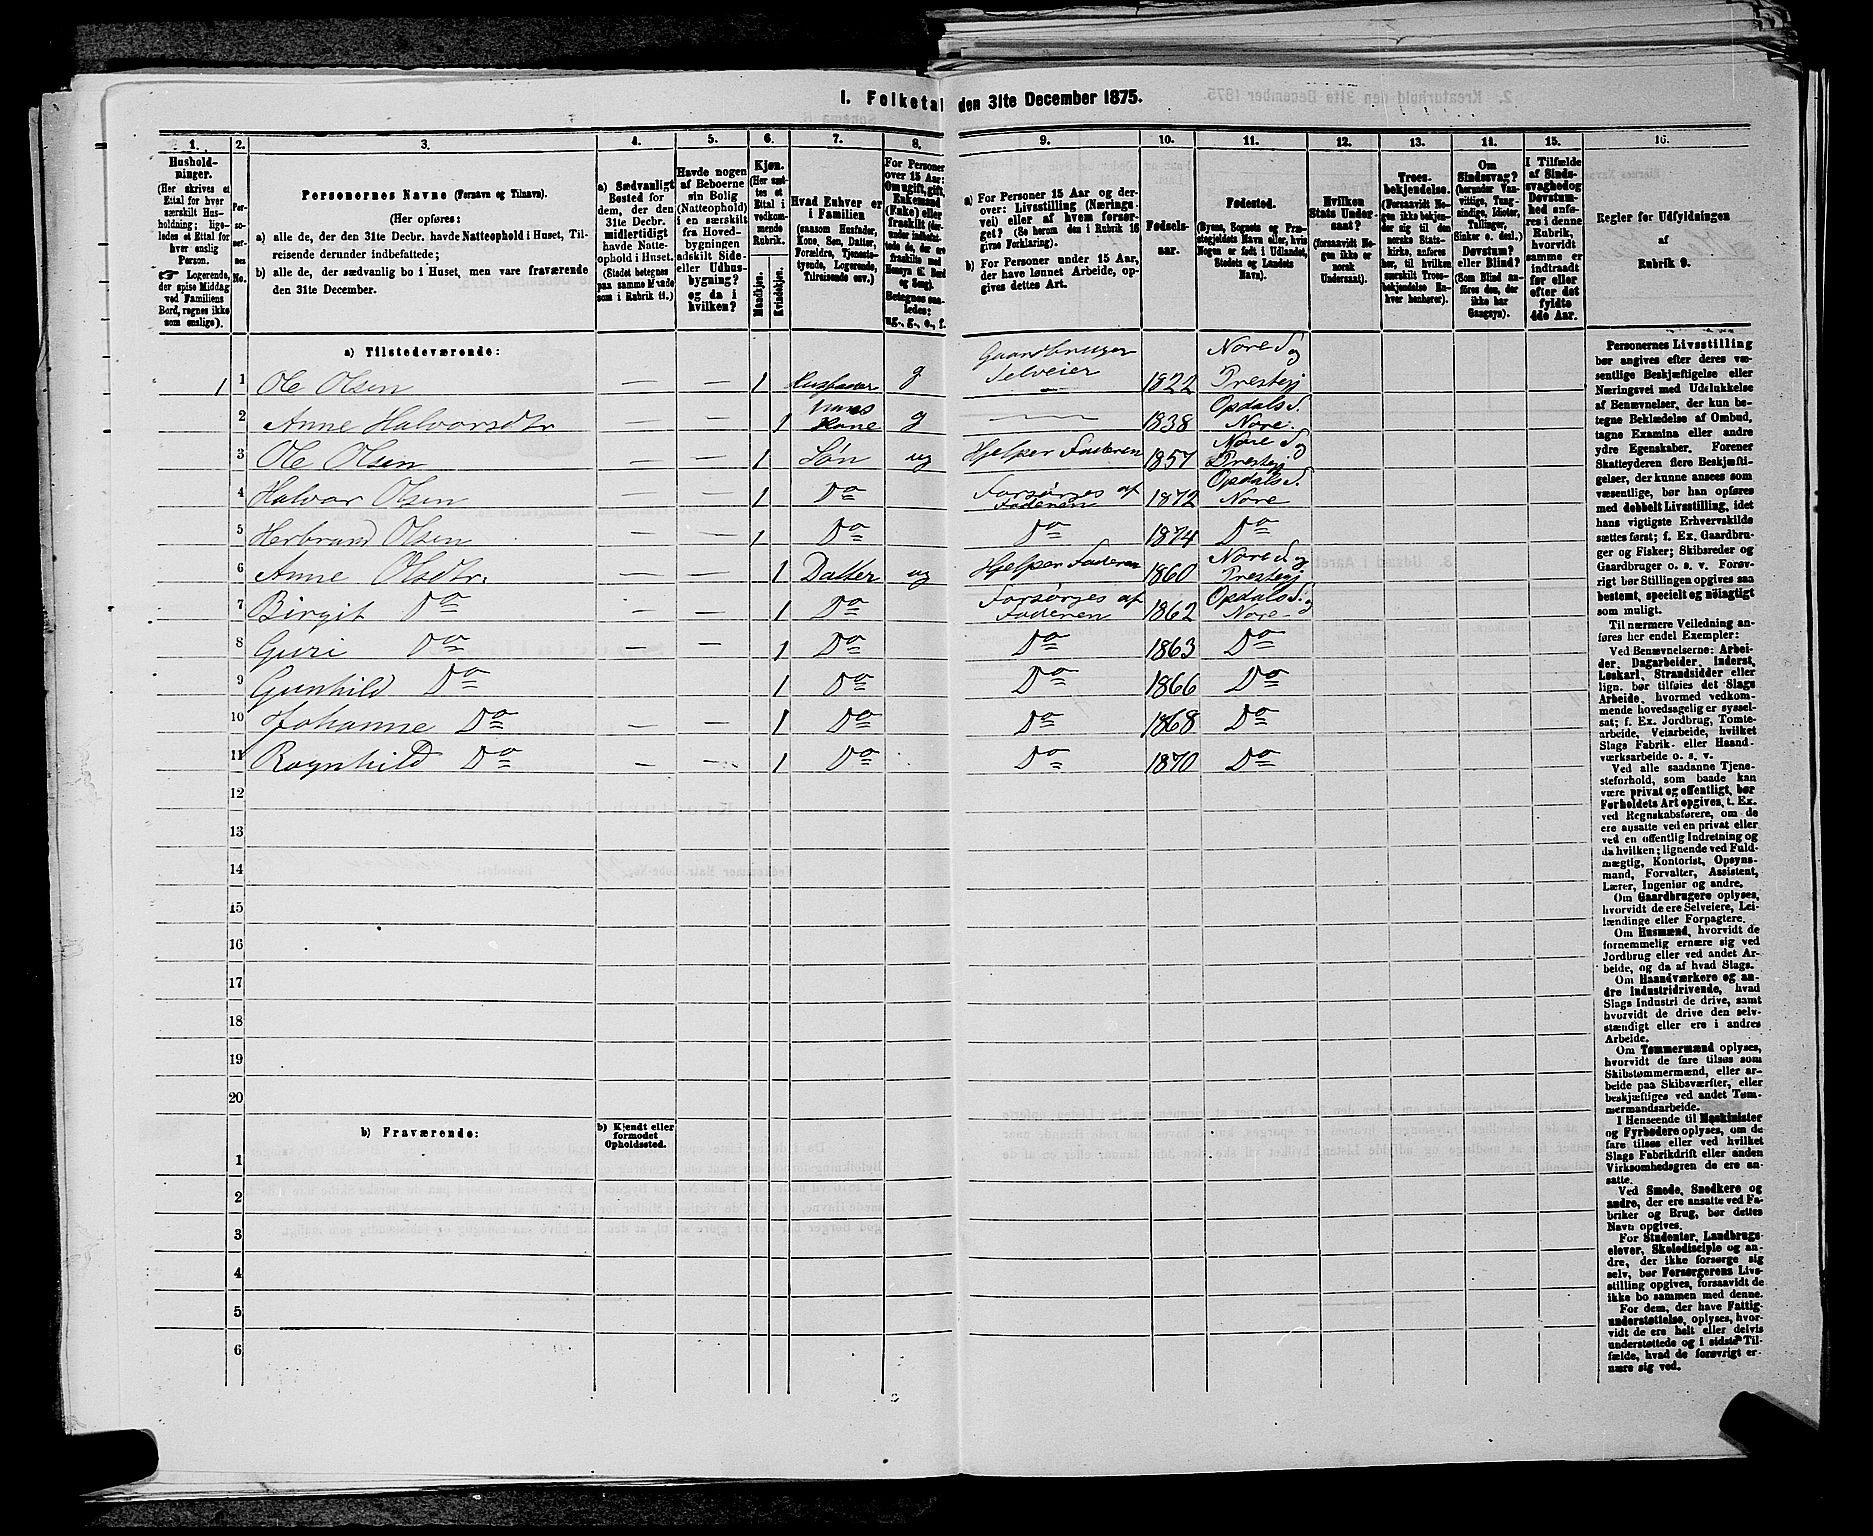 I. Folketal den 31te December 1875.
1. 2. 3. 4. 5. 6. 7. 8. 9. 10. 11. 12. 13. 14. 15. 16.
Husholdninger.
(Her skrives et Ettal for hver særskilt Husholdning; ligeledes et Ettal for hver enslig Person.
☞ Logerende, der spise Middag ved Familiens Bord, regnes ikke som enslige).
Personernes No.
Personernes Navne (Fornavn og Tilnavn).
(Her opføres:
a) alle de, der den 31te Decbr. havde Natteophold i Huset, Tilreisende derunder indbefattede;
b) alle de, der sædvanlig bo i Huset, men vare fraværende den 31te December.
a) Sædvanligt Bosted for dem, der den 31te Decbr. midlertidigt havde Natteophold i Huset.
(Stedet betegnes paa samme Maade som i Rubrik 11.)
Havde nogen af Beboerne sin Bolig (Natteophold) i en særskilt fra Hovedbygningen adskilt Side- eller Udhusbygning? og da i hvilken?
Kjøn.
(Her sættes et Ettal i vedkommende Rubrik.
Mandkjøn.
Kvindekjøn.
Hvad Enhver er i Familien
(saasom Husfader, Kone, Søn, Datter, Forældre, Tjenestetyende, Logerende, Tilreisende osv.)
For Personer over 15 Aar: Om ugift, gift, Enkemand (Enke) eller fraskilt
Betegnes saaledes: ug., g., e., f.
a) For Personer 15 Aar og derover: Livsstilling (Næringsvei) eller af hvem forsørget? (Se herom den i Rubrik 16 givne Forklaring).
b) For Personer under 15 Aar, der have lønnet Arbeide, opgives dettes Art.
Fødselsaar.
Fødested.
(Byens, Sognets og Præstegjeldets Navn eller, hvis Nogen er født i Udlandet, Stedets og Landets Navn).
Hvilken Stats Undersaat?
(forsaavidt Nogen ikke er norsk Undersaat).
Troesbekjendelse.
(Forsaavidt Nogen ikke bekjender sig til den norske Statskirke, anføres her, til hvilken særskilt Troesbekjendelse Enhver henhører).
Om Sindssvag? (herunder Vanvittige, Tungsindige, Idioter, Tullinger, Sinker o. desl.).
Døvstum? eller Blind?
(Som Blind anføres den, der ikke har Gangsyn).
I Tilfælde af Sindssvaghed og Døvstumhed anføres i denne Rubrik, hvorvidt samme er indtraadt før eller efter det fyldte 4de Aar.
Regler for Udfyldningen af Rubrik 9.
a) Tilstedeværende:
1 1 Ole Olsen — — 1 Husfader g Gaardbruger Selveier 1822 Nore S og Prestegj
2 Anne Halvorsdtr — — 1 Kone g — 1838 Opdals S. Nore
3 Ole Olsen — — 1 Søn ug Hjelper Faderen 1857 Nore S og Prestegj
4 Halvor Olsen — — 1 Do Forsørges af Faderen 1872 Opdals S. Nore
5 Herbrand Olsen — — 1 Do Do 1874 Do
6 Anne Olsdtr. — — 1 Datter ug Hjelper Faderen 1860 Nore S og Prestegj
7 Birgit Do — — 1 Do Forsørges af Faderen 1862 Opdals S. Nore
8 Guri Do — — 1 Do Do 1863 Do
9 Gunhild Do — — 1 Do Do 1866 Do
10 Johanne Do — — 1 Do Do 1868 Do
11 Ragnhild Do — — 1 Do Do 1870 Do
12
13
14
15
16
17
18
19
20
b) Fraværende: b) Kjendt eller formodet Opholdssted.
1
2
3
4
5
6
Personernes Livsstilling
bør angives efter deres væ-
sentlige Beskjæftigelse eller
Næringsvei med Udelukkelse
af Benævnelser, der kun be-
tegne Beklædelse af Ombud,
tagne Examina eller andre
ydre Egenskaber. Forener
Skatteyderen flere Beskjæfti-
gelser, der kunne ansees som
væsentlige, bør han opføres
med dobbelt Livsstilling, idet
hans vigtigste Erhvervskilde
sættes først; f. Ex. Gaardbru-
ger og Fisker; Skibsreder og
Gaardbruger o. s. v. Forøv-
rigt bør Stillingen opgives saa
bestemt, specielt og nøiagtigt
som muligt.
Til nærmere Veiledning an-
føres her endel Exempler:
Ved Benævnelserne: Arbei-
der, Dagarbeider, Inderst,
Løskarl, Strandsidder eller
lign. bør tilføies det Slags
Arbeide, hvormed vedkom-
mende hovedsagelig er syssel-
sat; f. Ex. Jordbrug, Tomte-
arbeide, Veiarbeide, hvilket
Slags Fabrik- eller Haand-
værksarbeide o. s. v.
Ved alle saadanne Tjene-
steforhold, som baade kan
være privat og offentligt, bør
Forholdets Art opgives, t. Ex.
ved Regnskabsførere, om de
ere ansatte ved en privat eller
ved en offentlig Indretning og
da hvilken; lignende ved Fuld-
mægtig, Kontorist, Opsyns-
mand, Forvalter, Assistent,
Lærer, Ingeniør og andre.
Om Gaardbrugere oplyses,
hvorvidt de ere Selveiere, Lei-
lændinge eller Forpagtere.
Om Husmænd, hvorvidt de
fornemmelig ernære sig ved
Jordbrug eller ved andet Ar-
beide, og da af hvad Slags.
Om Haandværkere og an-
dre Industridrivende, hvad
Slags Industri de drive, samt
hvorvidt de drive den selv-
stændigt eller ere i andres
Arbeide.
Om Tømmermænd oplyses,
hvorvidt de fare tilsøs som
Skibstømmermænd, eller ar-
beide paa Skibsværfter, eller
beskjæftiges ved andet Tøm-
mermandsarbeide.
I Henseende til Maskinister
og Fyrbødere oplyses, om de
fare tilsøs eller ved hvilket
Slags Fabrikdrift eller anden
Virksomhedsgren de ere an-
satte.
Ved Smede, Snedkere og
andre, der ere ansatte ved Fa-
briker og Brug, bør dettes
Navn opgives.
For Studenter, Landbrugs-
elever, Skoledisciple og an-
dre, der ikke forsørge sig
selv, bør Forsørgerens Livs-
stilling opgives, forsaavidt de
ikke bo sammen med denne.
For dem, der have Fattig-
understøttelse, oplyses, hvor-
vidt de ere helt eller delvis
understøttede og i sidste Til-
fælde, hvad de forøvrigt er-
nære sig ved.